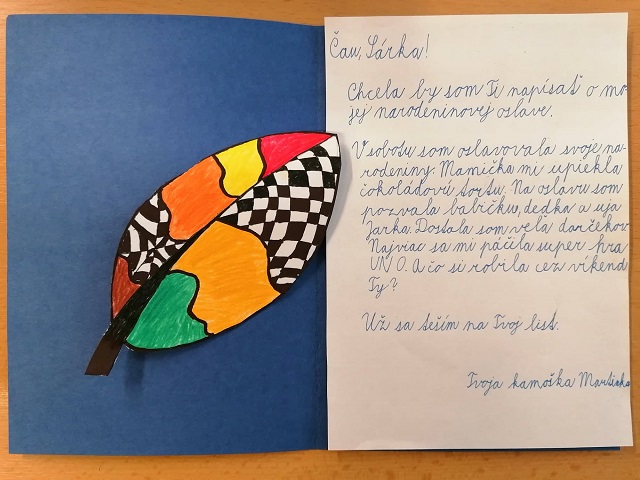 Čau, Sárka!
Chcela by som Ti napísať o mo-
jej narodeninovej oslave.
V sobotu som oslavovala svoje na-
rodeniny. Mamička mi upiekla
čokoládovú tortu. Na oslavu som
pozvala babičku, dedka a uja
Jarka. Dostala som veľa darčekov.
Najviac sa mi páčila super hra
UNO. A čo si robila cez víkend
Ty?
Už sa teším na Tvoj list.
Tvoja kamoška Martinka